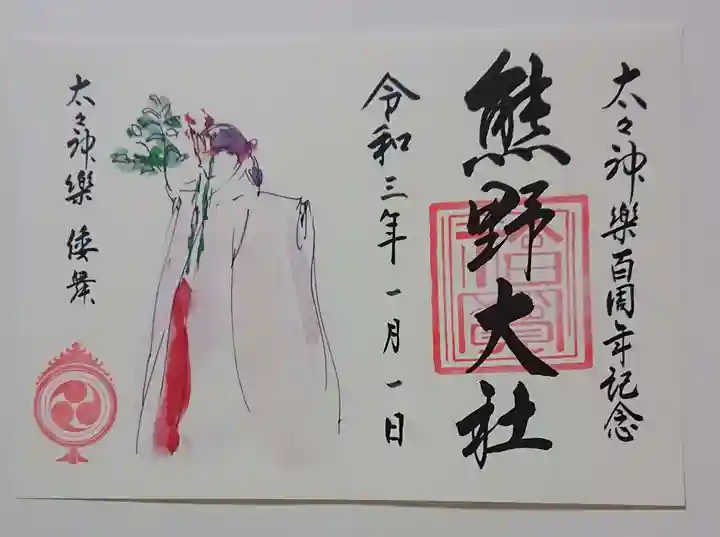 太々神樂百周年記念
熊野大社
令和三年一月一日
太々神樂 倭舞